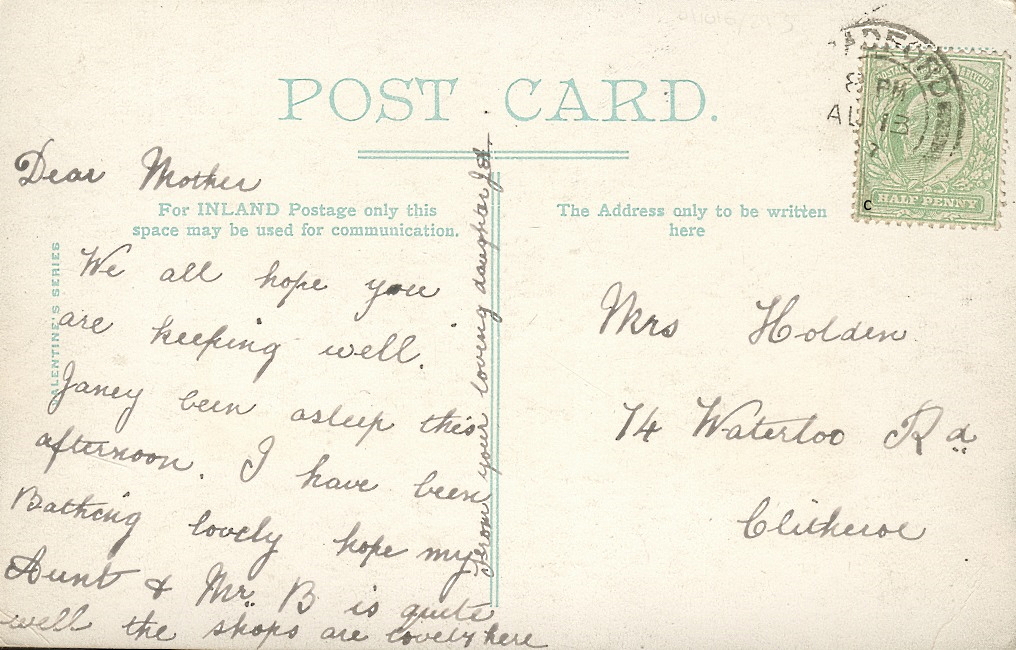 POST CARD.
ADFORD
8 PM
AU 13
7
POSTAGE
HALF PENNY
C
Dear Mother
For INLAND Postage only this
space may be used for communication.
The Address only to be written
here
VALENTINE'S SERIES
We all hope you
are keeping well.
Janey been asleep this
afternoon. I have been
Bathing lovely hope my
Aunt & Mr. B is quite
well the shops are lovely here
From your loving daughter
Mrs Holden
74 Waterloo Rd
Clitheroe